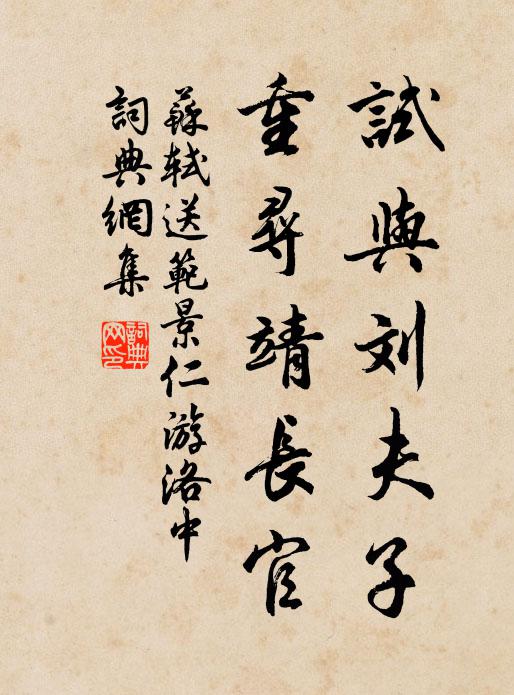 試與刘夫子
重尋靖長官
蘇軾送範景仁游洛中
詞典網集
詞典网印